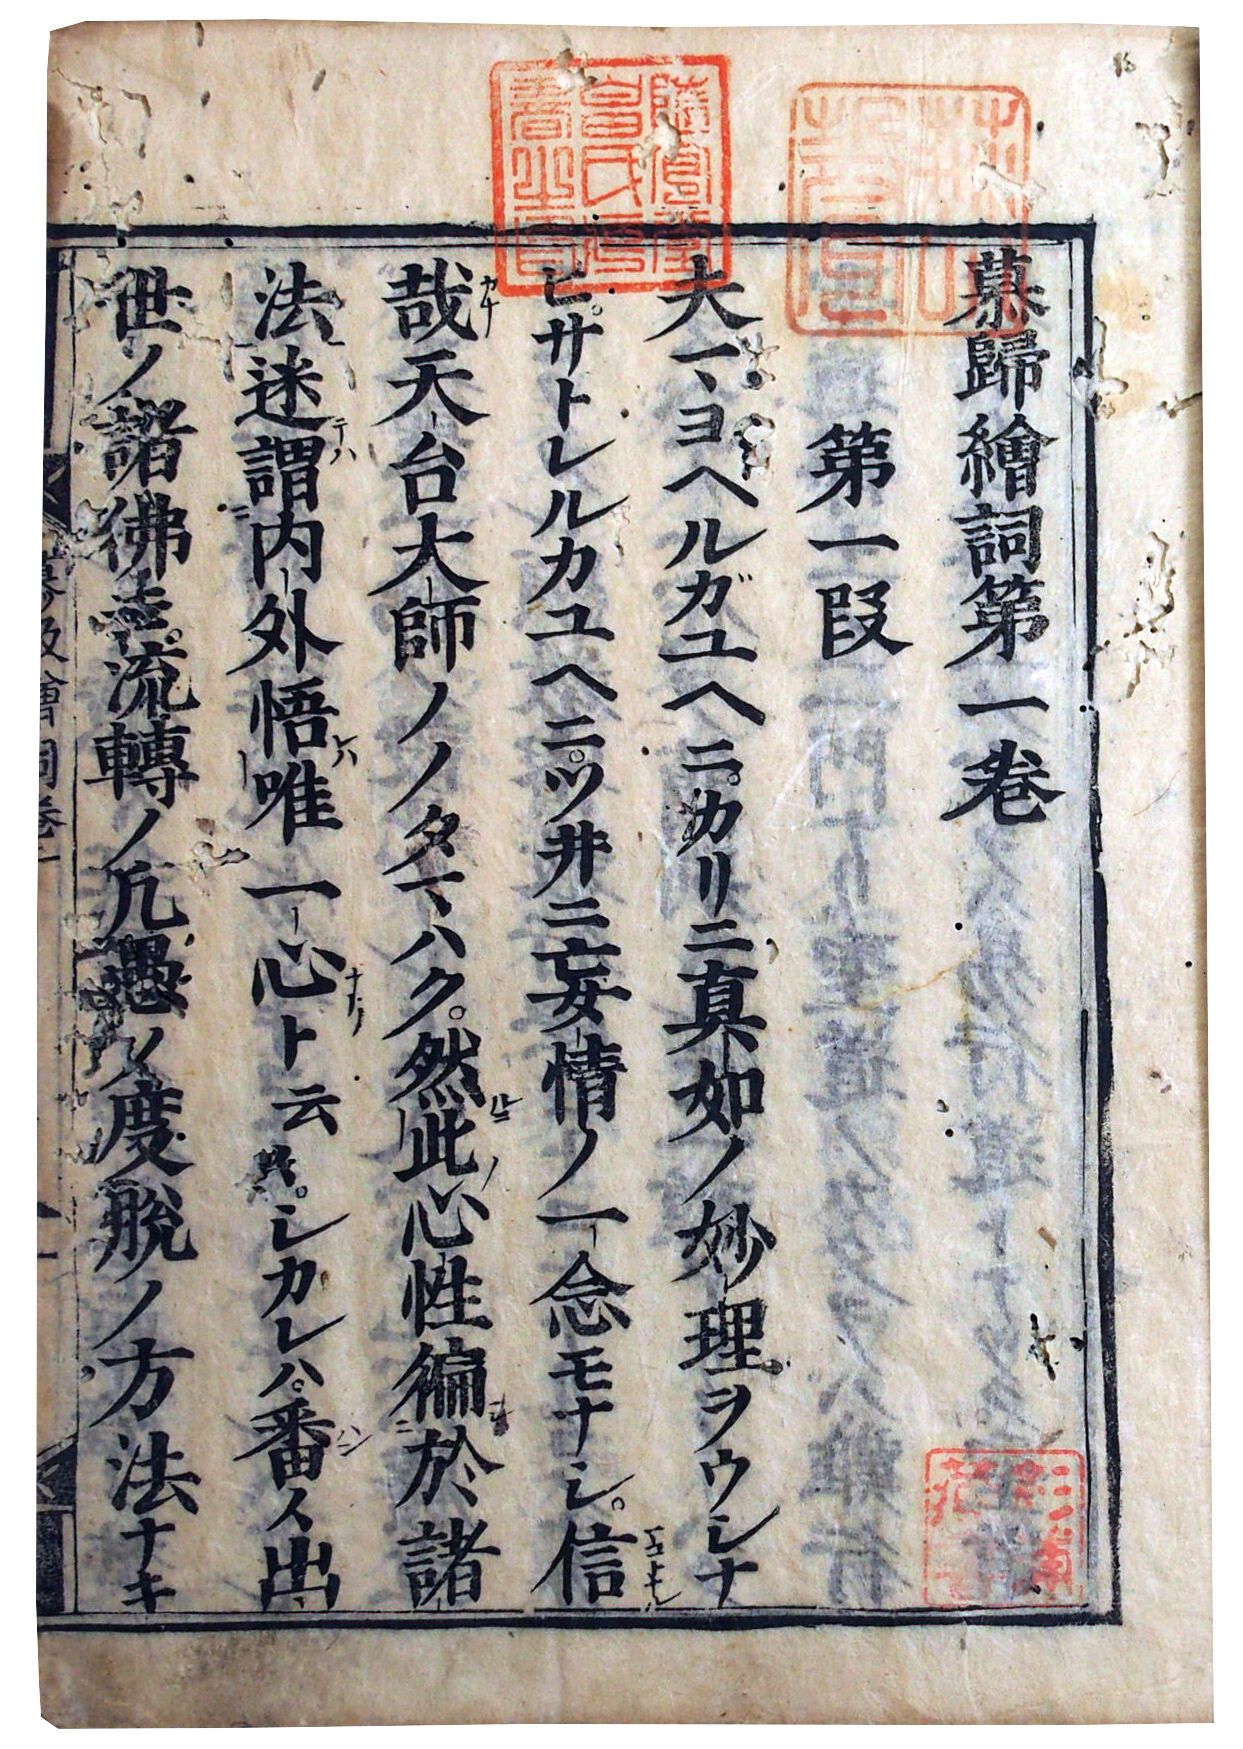 慕歸繪詞第一卷
第一段
夫マヨヘルガユヘニ。カリニ真如ノ妙理ヲウシナ
ヒ。サトレルカユヘニ。ツ井ニ妄情ノ一念モナシ。信
哉天台大師ノノタマハク。然此心性徧於諸
法迷謂内外悟唯一心ト云。シカレハ。番々出
世ノ諸佛モ。流轉ノ凢愚ノ度脱ノ方法ナキ